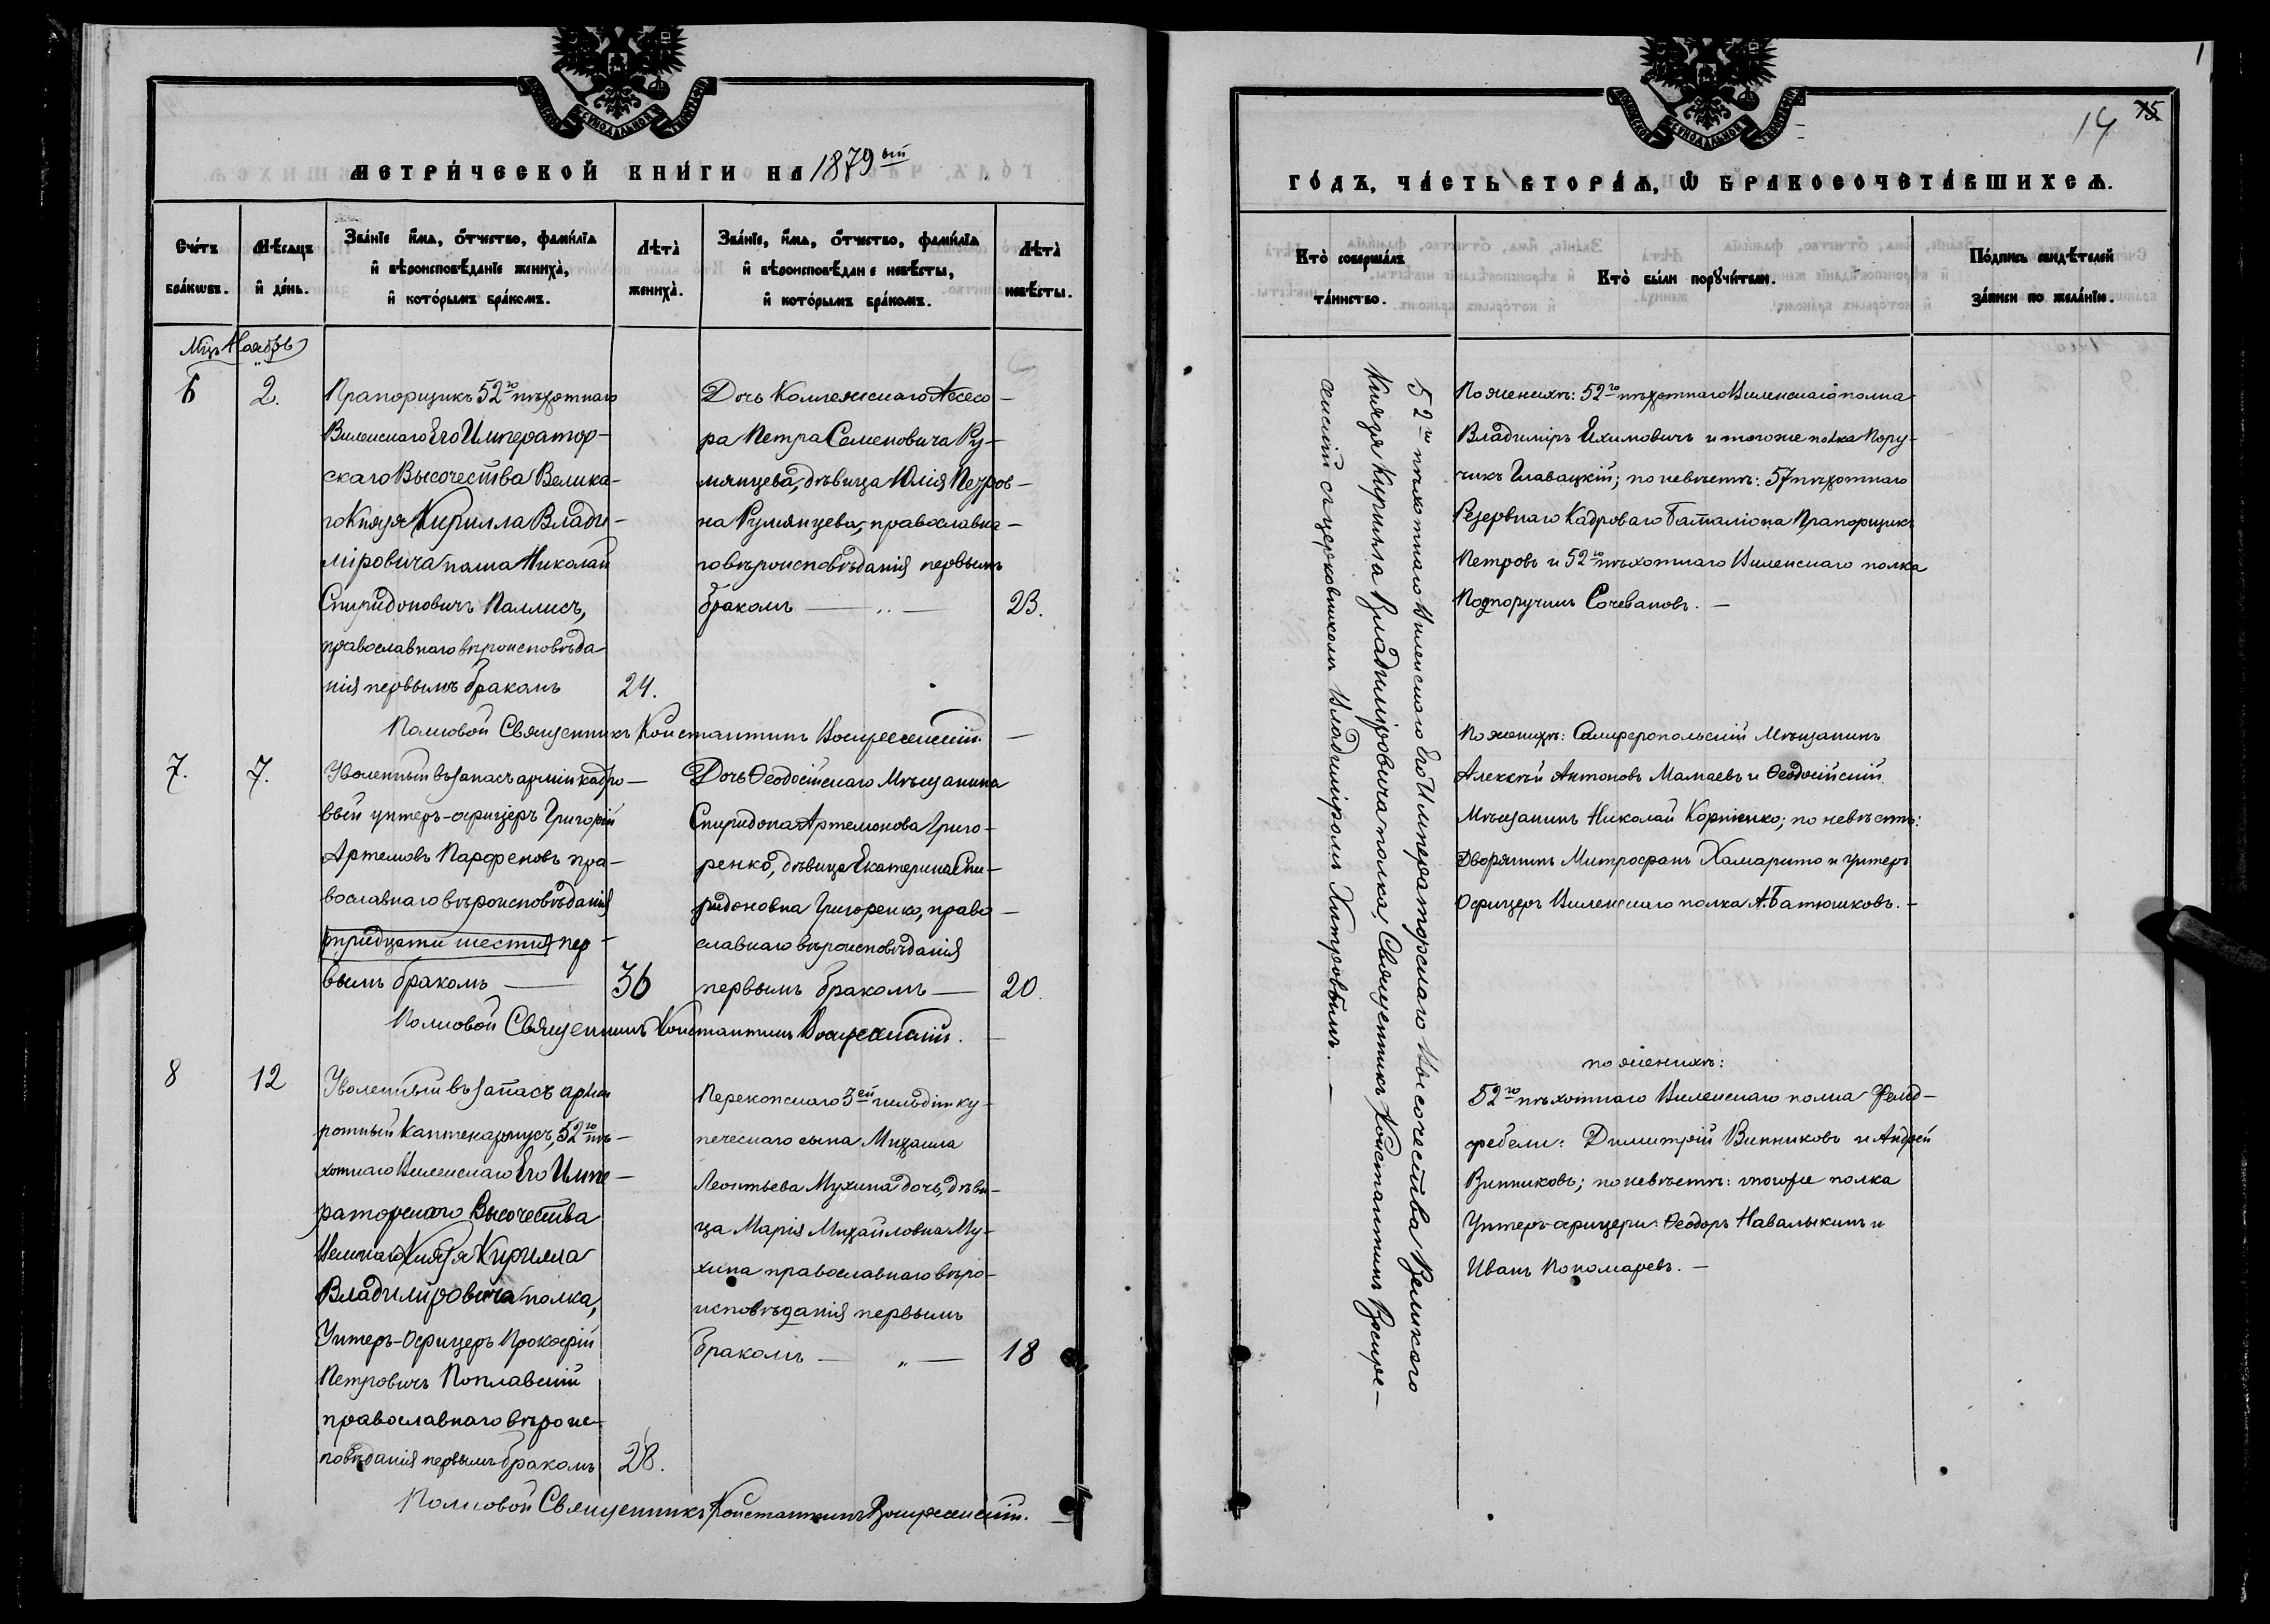 МЕТРИ́ЧЕСКОЙ КНИ́ГИ НА 1879ый
Сче́тъ бра́кѡвъ.
Мѣ́сяцъ и҆ де́нь.
Зва́нїе и҆́мѧ, ѻ҆́тчество, фами́лїѧ и҆ вѣроисповѣ́данїе жениха̀, и҆ кото́рымъ бра́комъ.
Лѣта̀ жениха̀.
Зва́нїе, и҆́мѧ, ѻ҆́тчество, фами́лїѧ и҆ вѣроисповѣ́данїе невѣ́сты, и҆ кото́рымъ бра́комъ.
Лѣта̀ невѣ́сты.
Мцъ Ноябрь
6
2.
Прапорщикъ 52го пѣхотнаго
Виленскаго Его Император-
скаго Высочества Велика-
го Князя Кирилла Влади-
міровича полка Николай
Спиридоновичъ Паллисъ,
православнаго вѣроисповѣда
нія первымъ бракомъ
24.
Дочь Коллежскаго Ассесо-
ра Петра Семеновича Ру-
мянцева, дѣвица Юлія Петров-
на Румянцева, православна-
го вѣроисповѣданія первымъ
бракомъ
23.
Полковой Священникъ Константинъ Воскресенскій
7.
7.
Уволенный въ запасъ арміи кадро-
вый унтеръ-офицеръ Григорій
Артемовъ Парфеновъ пра-
вославнаго вѣроисповѣданія
тридцати шести пер-
вымъ бракомъ
36
Дочь Ѳеодосійскаго Мѣщанина
Спиридона Артемонова Григо-
ренко, дѣвица Екатерина Спи-
ридоновна Григоренко, право-
славнаго вѣроисповѣданія
первымъ бракомъ
20.
Полковой Священникъ Константинъ Воскресенскій.
8
12
Уволенный въ запасъ арміи
ротный каптенармусъ, 52го пѣ-
хотнаго Виленскаго Его Импе-
раторскаго Высочества
Великаго Князя Кирилла
Владиміровича полка,
Унтеръ-Офицеръ Прокофій
Петровичъ Поплавскій
православнаго вѣроис-
повѣданія первымъ бракомъ
28.
Перекопскаго 3ей гильдіи ку-
печескаго сына Михаила
Леонтьева Мухина дочь, дѣви-
ца Марія Михайловна Му-
хина православнаго вѣро-
исповѣданія первымъ
бракомъ
18
Полковой Священникъ Константинъ Воскресенскій.
14 75
ГО́ДЪ, ЧА́СТЬ ВТОРА́Ѧ, Ѡ҆ БРАКОСОЧЕТА́ВШИХСѦ.
Кто̀ соверша́лъ та́инство.
Кто̀ бы́ли порꙋчи́тели.
По́дпись свидѣ́телей за́писи по жела́нїю.
52го пѣхотнаго Виленскаго Его Императорскаго Высочества Великаго
Князя Кирилла Владиміровича полка, Священникъ Константинъ Воскре-
сенскій съ церковникомъ Владиміромъ Хитровымъ.
По женихѣ: 52го пѣхотнаго Виленскаго полка
Владиміръ Якимовичъ и тогоже полка Пору-
чикъ Главацкій; по невѣстѣ: 57 пѣхотнаго
Резервнаго Кадроваго Баталіона Прапорщикъ
Петровъ и 52го пѣхотнаго Виленскаго полка
Подпоручикъ Сочевановъ.
По женихѣ: Симферопольскій Мѣщанинъ
Алексѣй Антоновъ Мамаевъ и Ѳеодосійскій
Мѣщанинъ Николай Корніенко; по невѣстѣ:
Дворянинъ Митрофанъ Хамарито и унтеръ
Офицеръ Виленскаго полка А. Батюшковъ.
по женихѣ:
52го пѣхотнаго Виленскаго полка Фельд-
фебели: Димитрій Винниковъ и Андрей
Винниковъ; по невѣстѣ: тогоже полка
Унтеръ-офицеры: Ѳеодоръ Навалыкинъ и
Иванъ Пономаревъ.